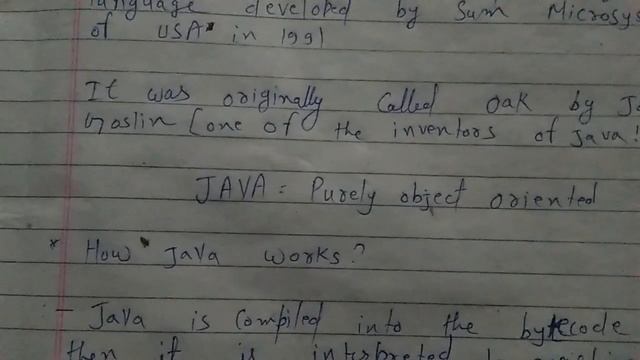 language developed by Sum Microsys
of USA in 1991
It was originally called oak by Ja
Goslin [one of the inventors of java!
JAVA = Purely object oriented
* How Java works?
- Java is compiled into the bytecode
then it is interpreted